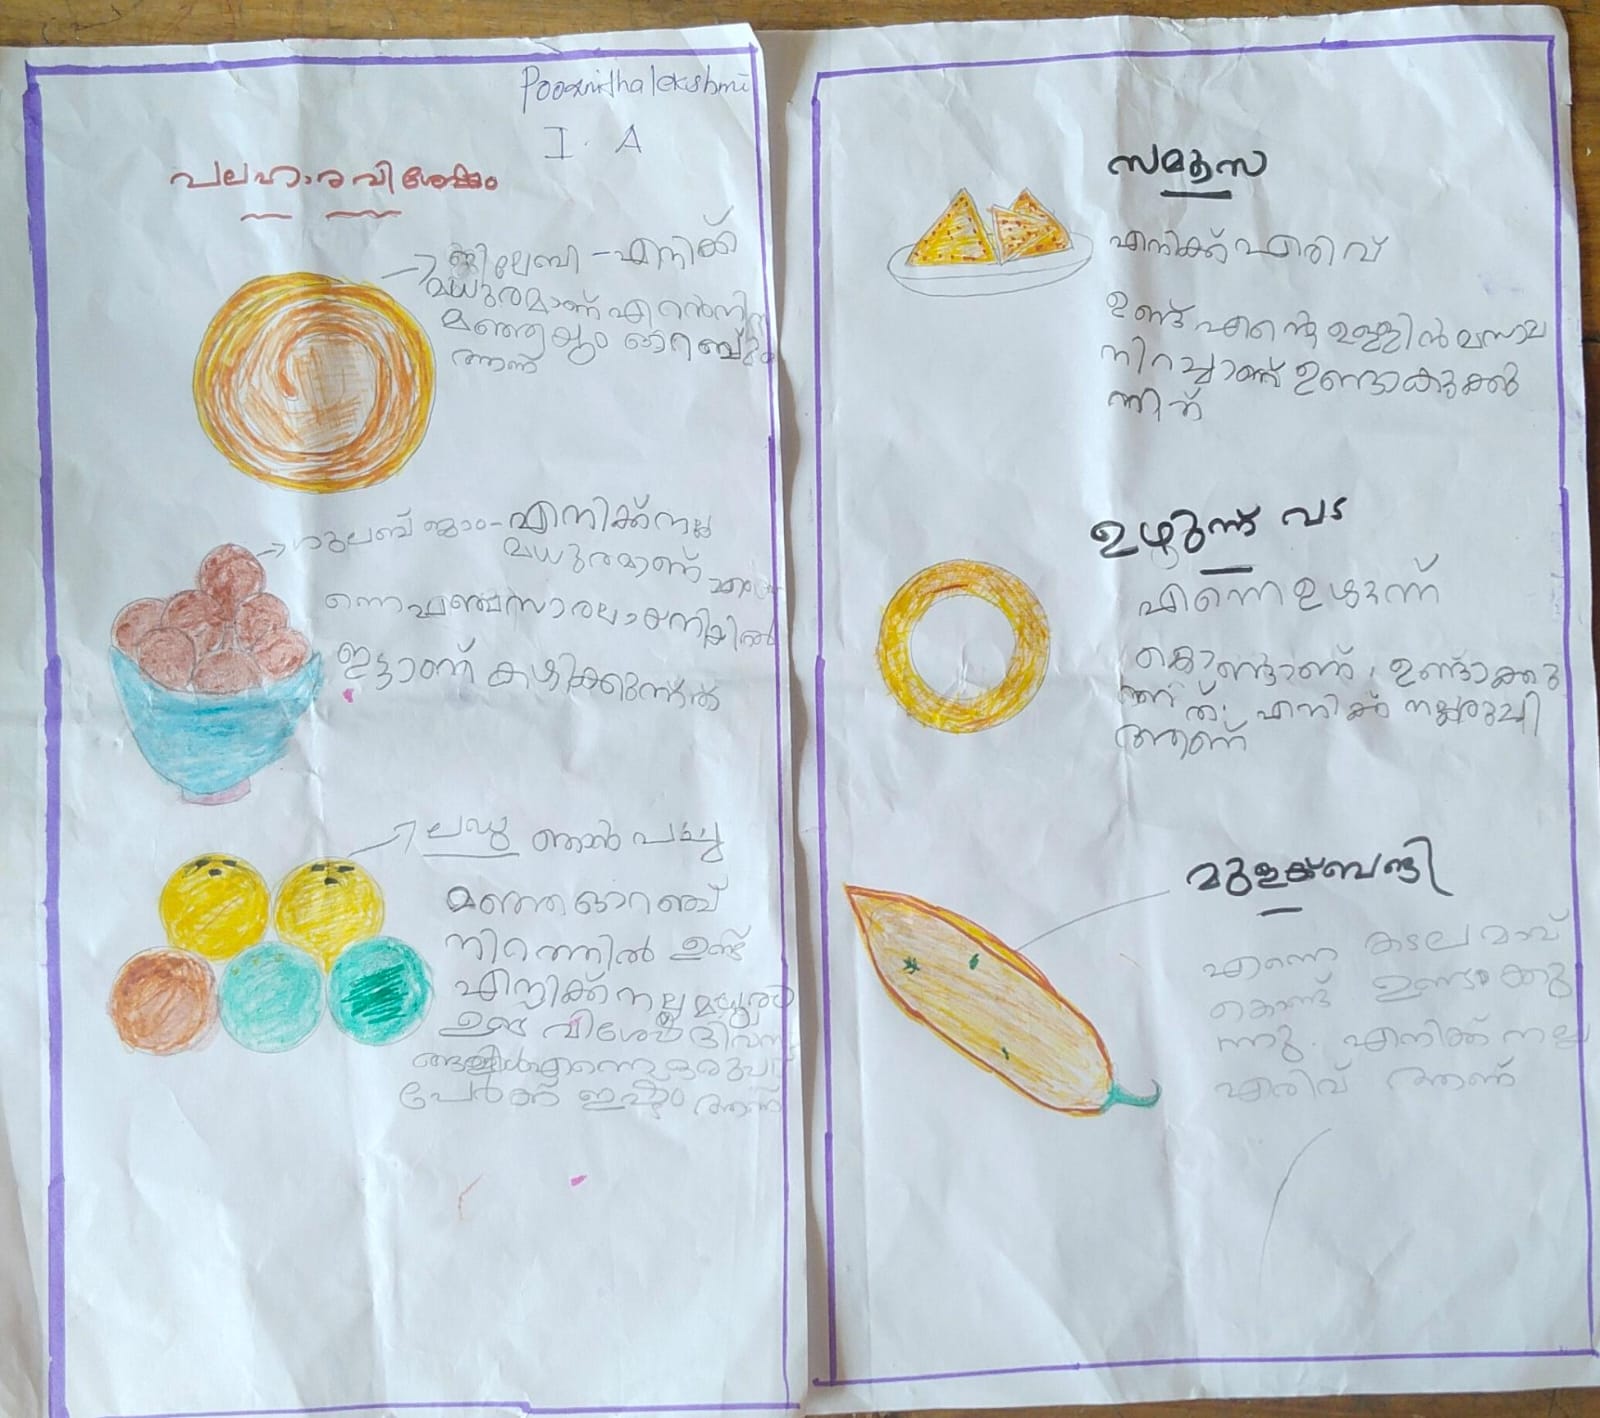 Poornithalekshmi
I. A
പലഹാരവിശേഷം
ജിലേബി - എനിക്ക്
മധുരമാണ് എൻെനി
മഞ്ഞയും ഓറഞ്ചും
ആണ്
ഗുലബ് ജാം - എനിക്ക് നല്ല
മധുരമാണ്
ന്നെ പഞ്ചസാരലായനിയിൽ
ഇട്ടാണ് കഴിക്കുന്നത്
ലഡു ഞാൻ പച്ച
മഞ്ഞ ഓറഞ്ച്
നിറത്തിൽ ഉണ്ട്
എനിക്ക് നല്ല മധുരം
ഉണ്ട് വിശേഷദിവസ
ങ്ങളിൽ എന്നെ ഒരുപാട്
പേർക്ക് ഇഷ്ടം ആണ്
സമൂസ
എനിക്ക് എരിവ്
ഉണ്ട് എന്റെ ഉള്ളിൽ മസാല
നിറച്ചാണ് ഉണ്ടാകുക്കു
ന്നിത്
ഉഴുന്ന് വട
എന്നെ ഉഴുന്ന്
കൊണ്ടാണ് ഉണ്ടാക്കു
ന്നത്. എനിക്ക് നല്ലരുചി
ആണ്
മുളക്ബജി
എന്നെ കടലമാവ്
കൊണ്ട് ഉണ്ടാക്കു
ന്നു. എനിക്ക് നല്ല
എരിവ് ആണ്